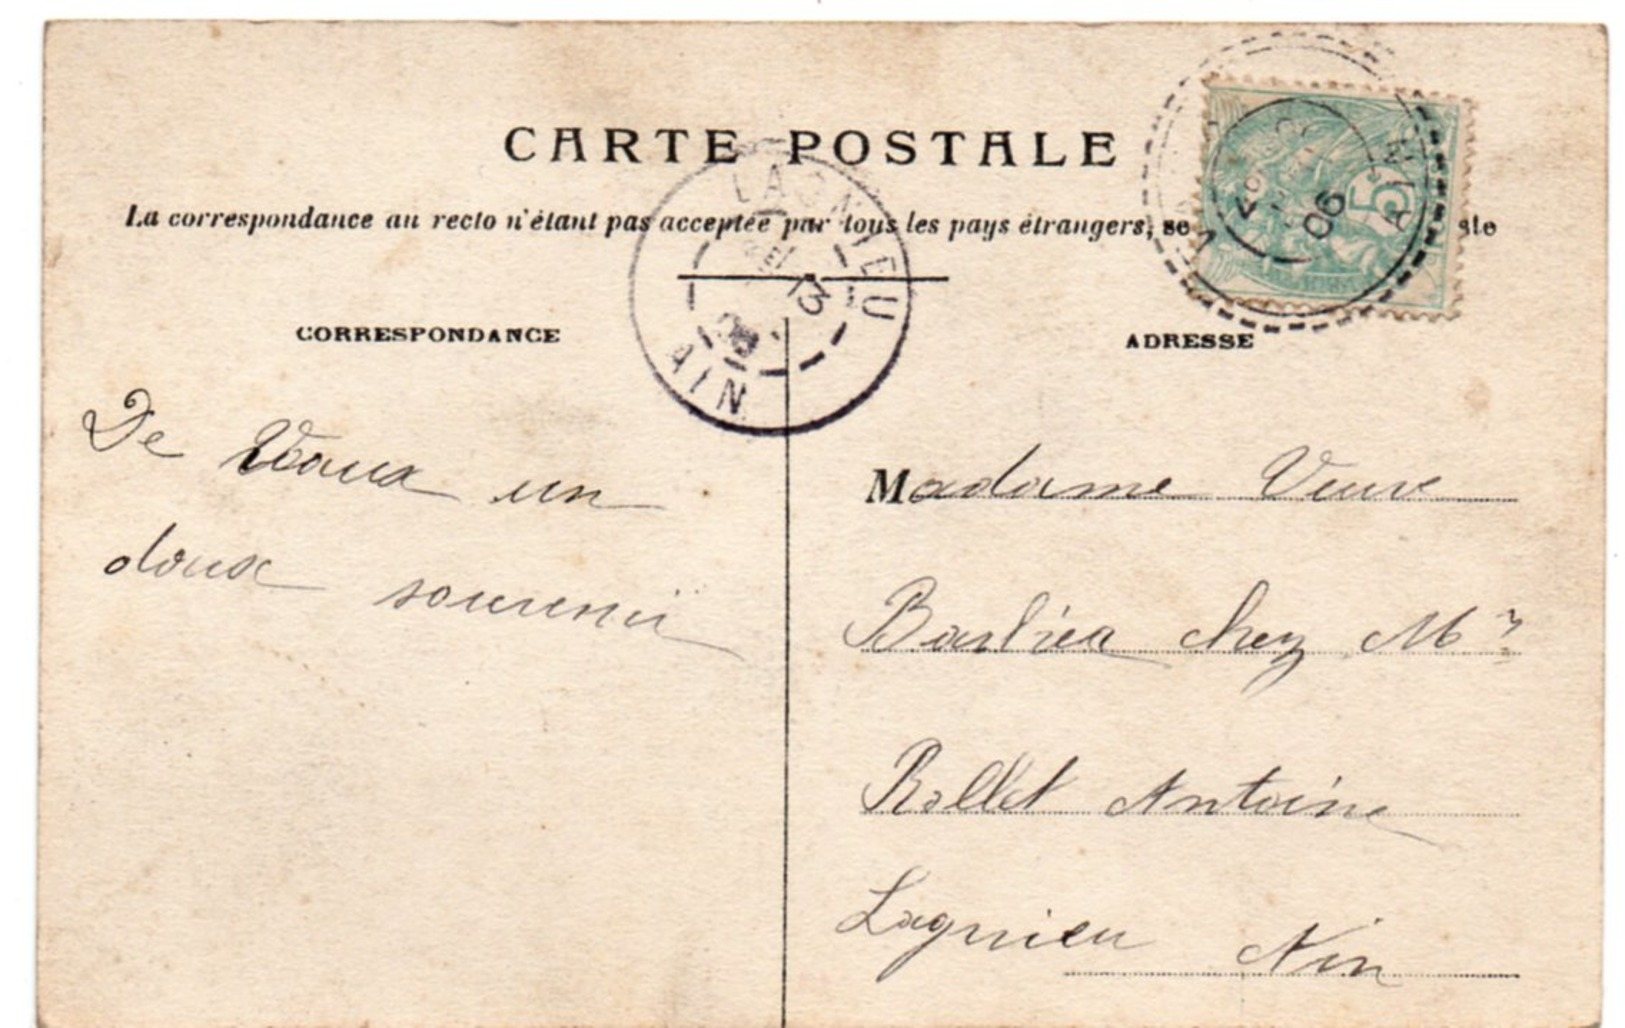 CARTE POSTALE
La correspondance au recto n'étant pas acceptée par tous les pays étrangers, se
ste
LAGNIEU
13
AIN
5
06
AIN
CORRESPONDANCE
De Vaux un
doux souvenir
ADRESSE
Madame Veuve
chez Mr
Rollet Antoine
Lagnieu Ain